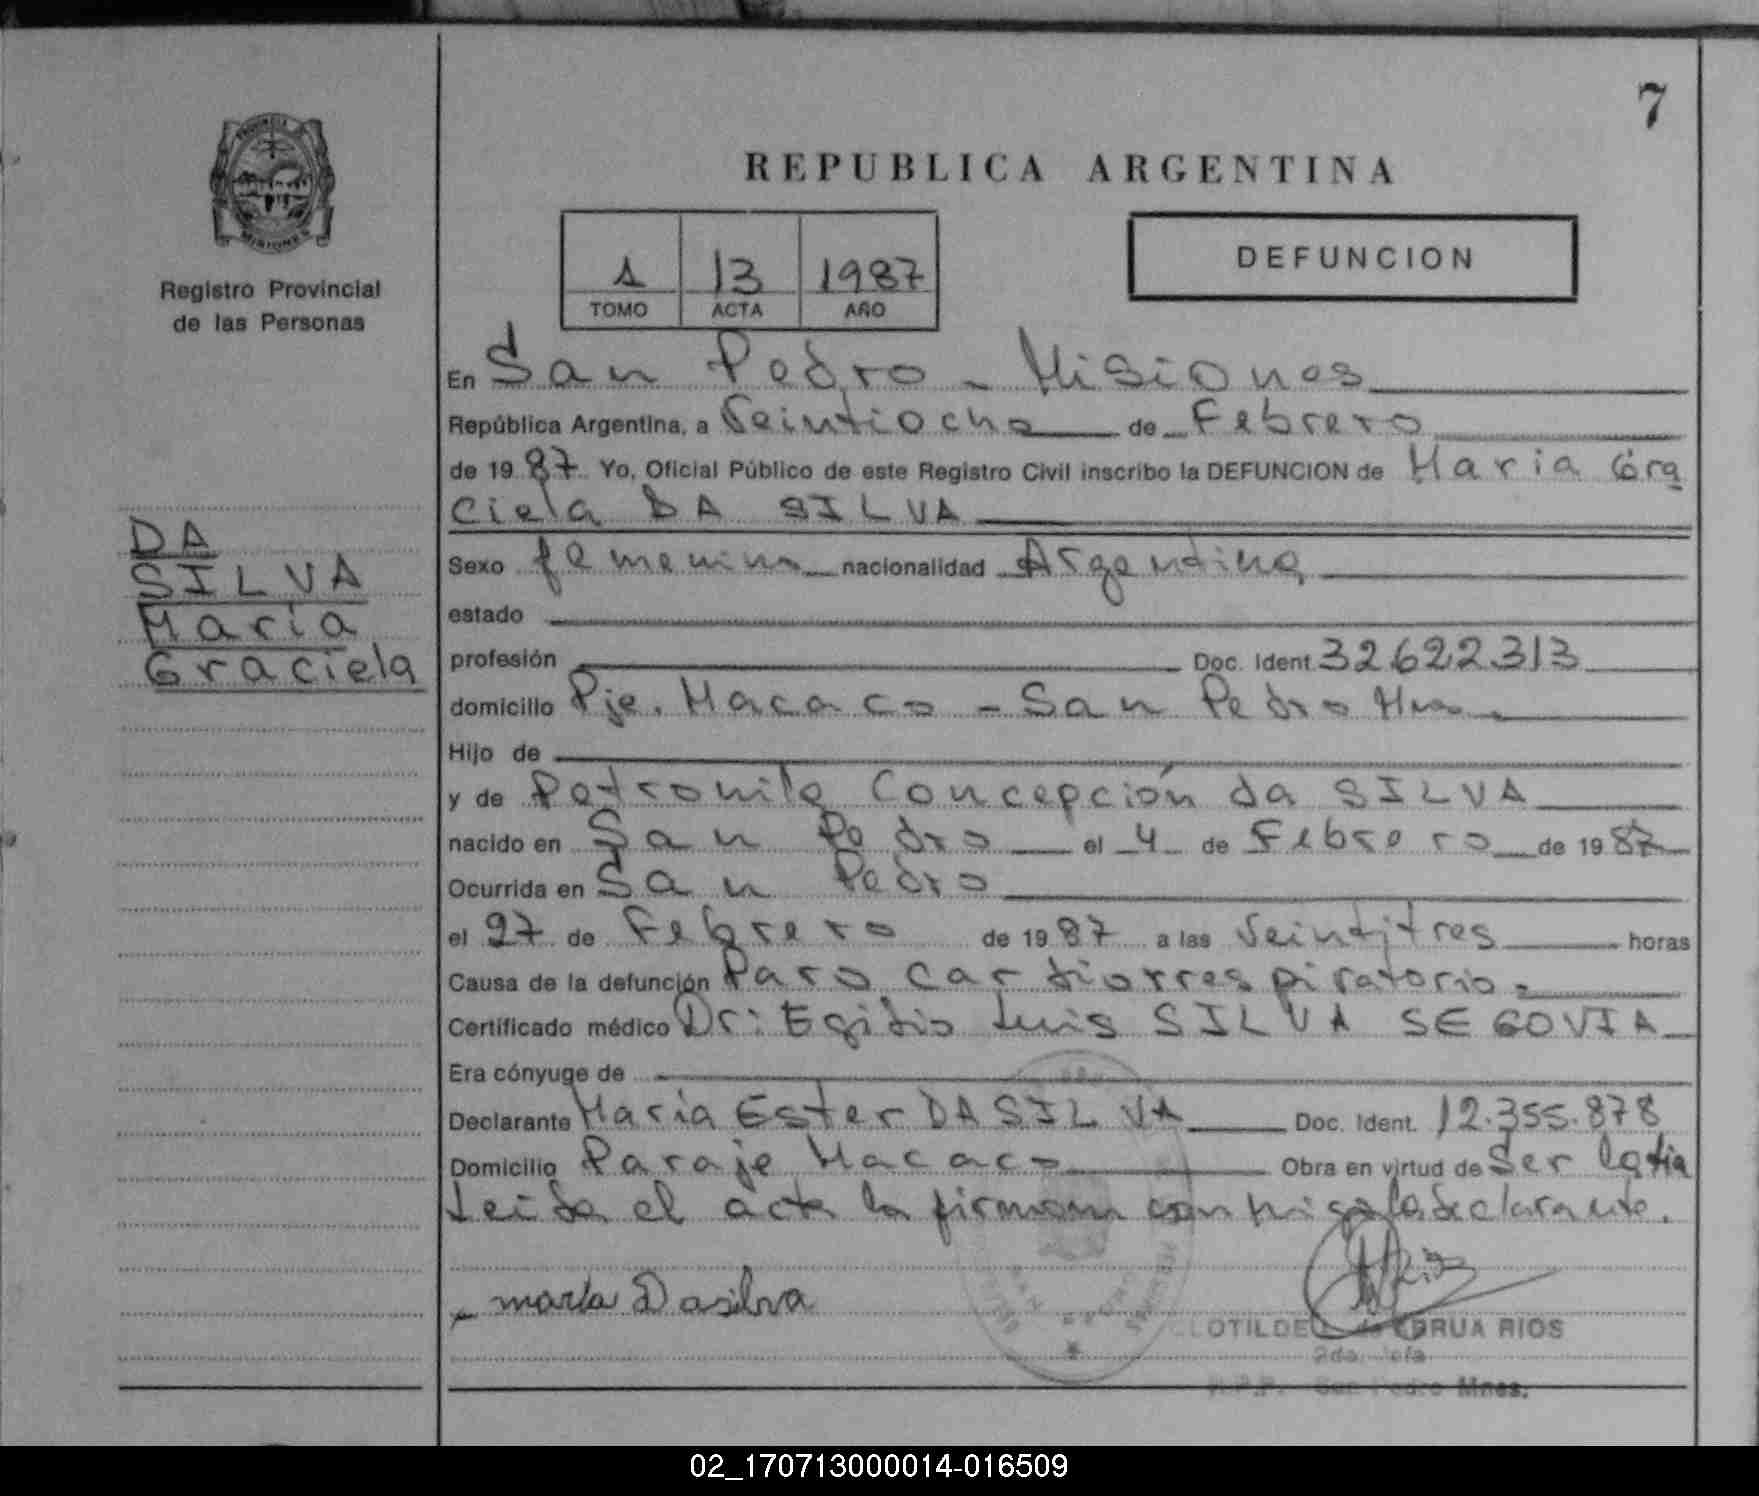 7
PROVINCIA
MISIONES
Registro Provincial
de las Personas
REPUBLICA ARGENTINA
1 13 1987
TOMO ACTA AÑO
DEFUNCION
DA
SILVA
María
Graciela
En San Pedro - Misiones
República Argentina, a Veintiocho de Febrero
de 1987 Yo, Oficial Público de este Registro Civil inscribo la DEFUNCION de Maria Gra
ciela DA SILVA
Sexo femenino nacionalidad Argentina
estado
profesión Doc. Ident. 32.622.313
domicilio Pje. Macaco - San Pedro Mnes.
Hijo de
y de Petronila Concepción da SILVA
nacido en San Pedro el 4 de Febrero de 1987
Ocurrida en San Pedro
el 27 de Febrero de 1987 a las Veintitres horas
Causa de la defunción Paro cardiorrespiratorio.
Certificado médico Dr: Egidio Luis SILVA SEGOVIA
Era cónyuge de
Declarante María Ester DA SILVA Doc. Ident. 12.355.878
Domicilio Paraje Macaco Obra en virtud de Ser la tia
Leida el acta la firman conmigo la declarante.
maria Dasilva
CLOTILDE RIOS
2da. Jefa
R.P.P. San Pedro Mnes.
02_170713000014-016509